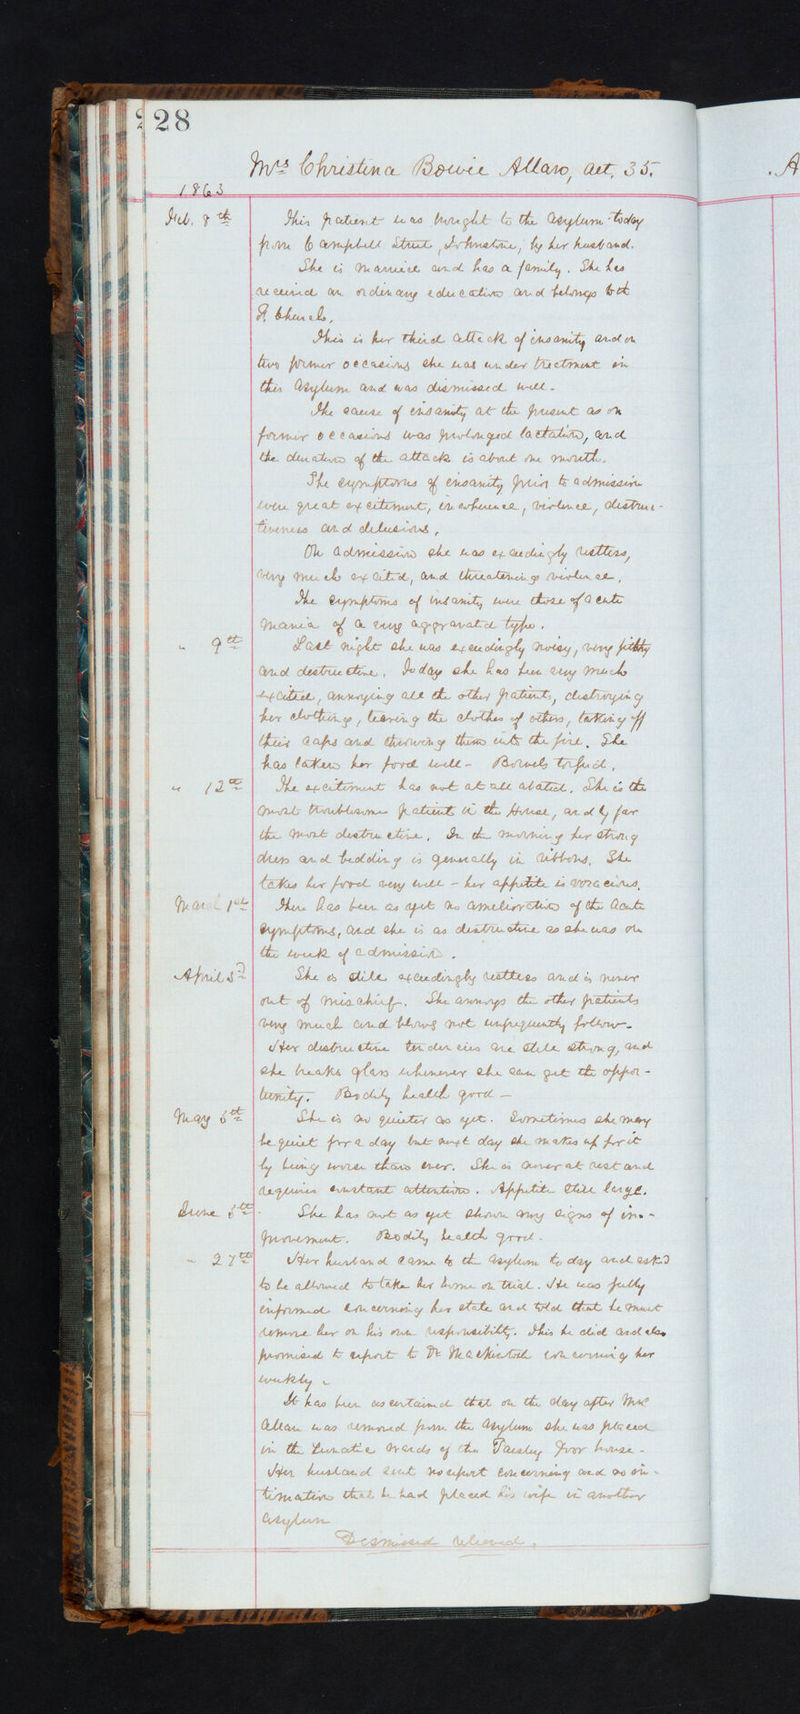 228
Mrs Christina Bowie Allan, aet. 35.
1863
Feb. 8th This patient was brought to the asylum today
from Campbell Street, Johnstone, by her husband.
She is married and has a family. She has
received an ordinary education and belongs to the
F. Church.
This is her third attack of insanity and on
two former occasions she was under treatment in
this asylum and was dismissed well.
The cause of insanity at the present as on
former occasions was prolonged lactation, and
the duration of the attack is about one month.
The symptoms of insanity prior to admission
were great excitement, incoherence, violence, destruc-
tiveness and delusions.
On admission she was exceedingly restless,
very much excited, and threatening violence.
The symptoms of insanity were those of acute
mania of a very aggravated type.
" 9th Last night she was exceedingly noisy, very filthy
and destructive. Today she has been very much
excited, annoying all the other patients, destroying
her clothing, tearing the clothes of others, taking off
their caps and throwing them into the fire. She
has taken her food well - Bowels torpid.
" 12th The excitement has not at all abated. She is the
most troublesome patient in the House, and by far
the most destructive. In the morning her strong
dress and bedding is generally in ribbons. She
takes her food very well - her appetite is voracious.
March 1st There has been as yet no amelioration of the acute
symptoms, and she is as destructive as she was on
the week of admission.
April 3d She is still exceedingly restless and is never
out of mischief. She annoys the other patients
very much and blows not unfrequently follow.
Her destructive tendencies are still strong, and
she breaks glass whenever she can get the oppor-
tunity. Bodily health good -
May 6th She is no quieter as yet. Sometimes she may
be quiet for a day but next day she makes up for it
by being worse than ever. She is never at rest and
requires constant attention. Appetite still large.
June 6th She has not as yet shown any signs of im-
provement. Bodily health good.
" 27th Her husband came to the asylum today and asked
to be allowed to take her home on trial. He was fully
informed concerning her state and told that he must
remove her on his own responsibility. This he did and also
promised to report to Dr Mackintosh concerning her
weekly.
It has been ascertained that on the day after Mrs
Allan was removed from the asylum she was placed
in the Lunatic Wards of the Paisley Poor house -
Her husband sent no report concerning and no in-
timation that he had placed his wife in another
asylum
Dismissed relieved.
A